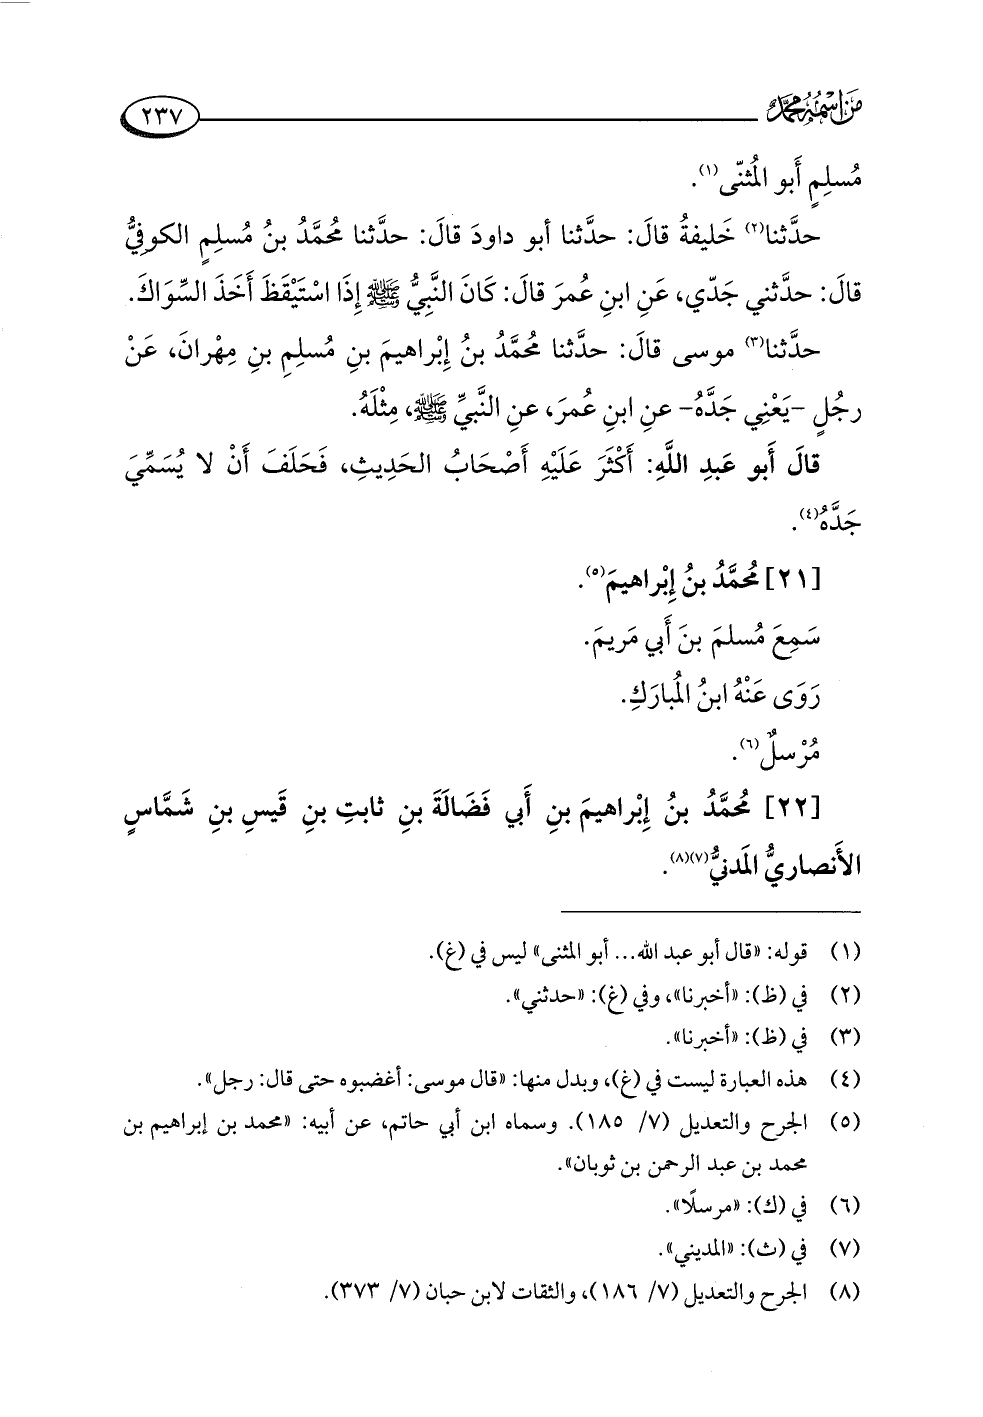 مَن اسْمُهُ مُحَمَّدٌ
٢٣٧
مُسلِمٍ أَبو المُثنّى(١).
حدَّثنا(٢) خَليفةُ قالَ: حدَّثنا أبو داودَ قالَ: حدَّثنا مُحَمَّدُ بنُ مُسلِمٍ الكوفِيُّ
قالَ: حدَّثني جَدّي، عَنِ ابنِ عُمرَ قالَ: كَانَ النَّبِيُّ ﷺ إِذَا اسْتَيْقَظَ أَخَذَ السِّوَاكَ.
حدَّثنا(٣) موسى قالَ: حدَّثنا مُحَمَّدُ بنُ إِبْراهيمَ بنِ مُسلِمِ بنِ مِهْرانَ، عَنْ
رجُلٍ -يَعْنِي جَدَّهُ- عنِ ابنِ عُمرَ، عنِ النَّبيِّ ﷺ، مِثْلَهُ.
قالَ أَبو عَبدِ اللَّهِ: أَكْثَرَ عَلَيْهِ أَصْحَابُ الحَديثِ، فَحَلَفَ أَنْ لا يُسَمِّيَ
جَدَّهُ(٤).
[٢١] مُحَمَّدُ بنُ إِبْراهيمَ(٥).
سَمِعَ مُسلمَ بنَ أَبي مَريمَ.
رَوَى عَنْهُ ابنُ المُبارَكِ.
مُرْسلٌ(٦).
[٢٢] مُحَمَّدُ بنُ إِبْراهيمَ بنِ أَبي فَضَالَةَ بنِ ثابتِ بنِ قَيسِ بنِ شَمَّاسٍ
الأَنصاريُّ المَدنيُّ(٧)(٨).
(١) قوله: «قال أبو عبد الله... أبو المثنى» ليس في (غ).
(٢) في (ظ): «أخبرنا»، وفي (غ): «حدثني».
(٣) في (ظ): «أخبرنا».
(٤) هذه العبارة ليست في (غ)، وبدل منها: «قال موسى: أغضبوه حتى قال: رجل».
(٥) الجرح والتعديل (٧/ ١٨٥). وسماه ابن أبي حاتم، عن أبيه: «محمد بن إبراهيم بن
محمد بن عبد الرحمن بن ثوبان».
(٦) في (ك): «مرسلًا».
(٧) في (ث): «المديني».
(٨) الجرح والتعديل (٧/ ١٨٦)، والثقات لابن حبان (٧/ ٣٧٣).